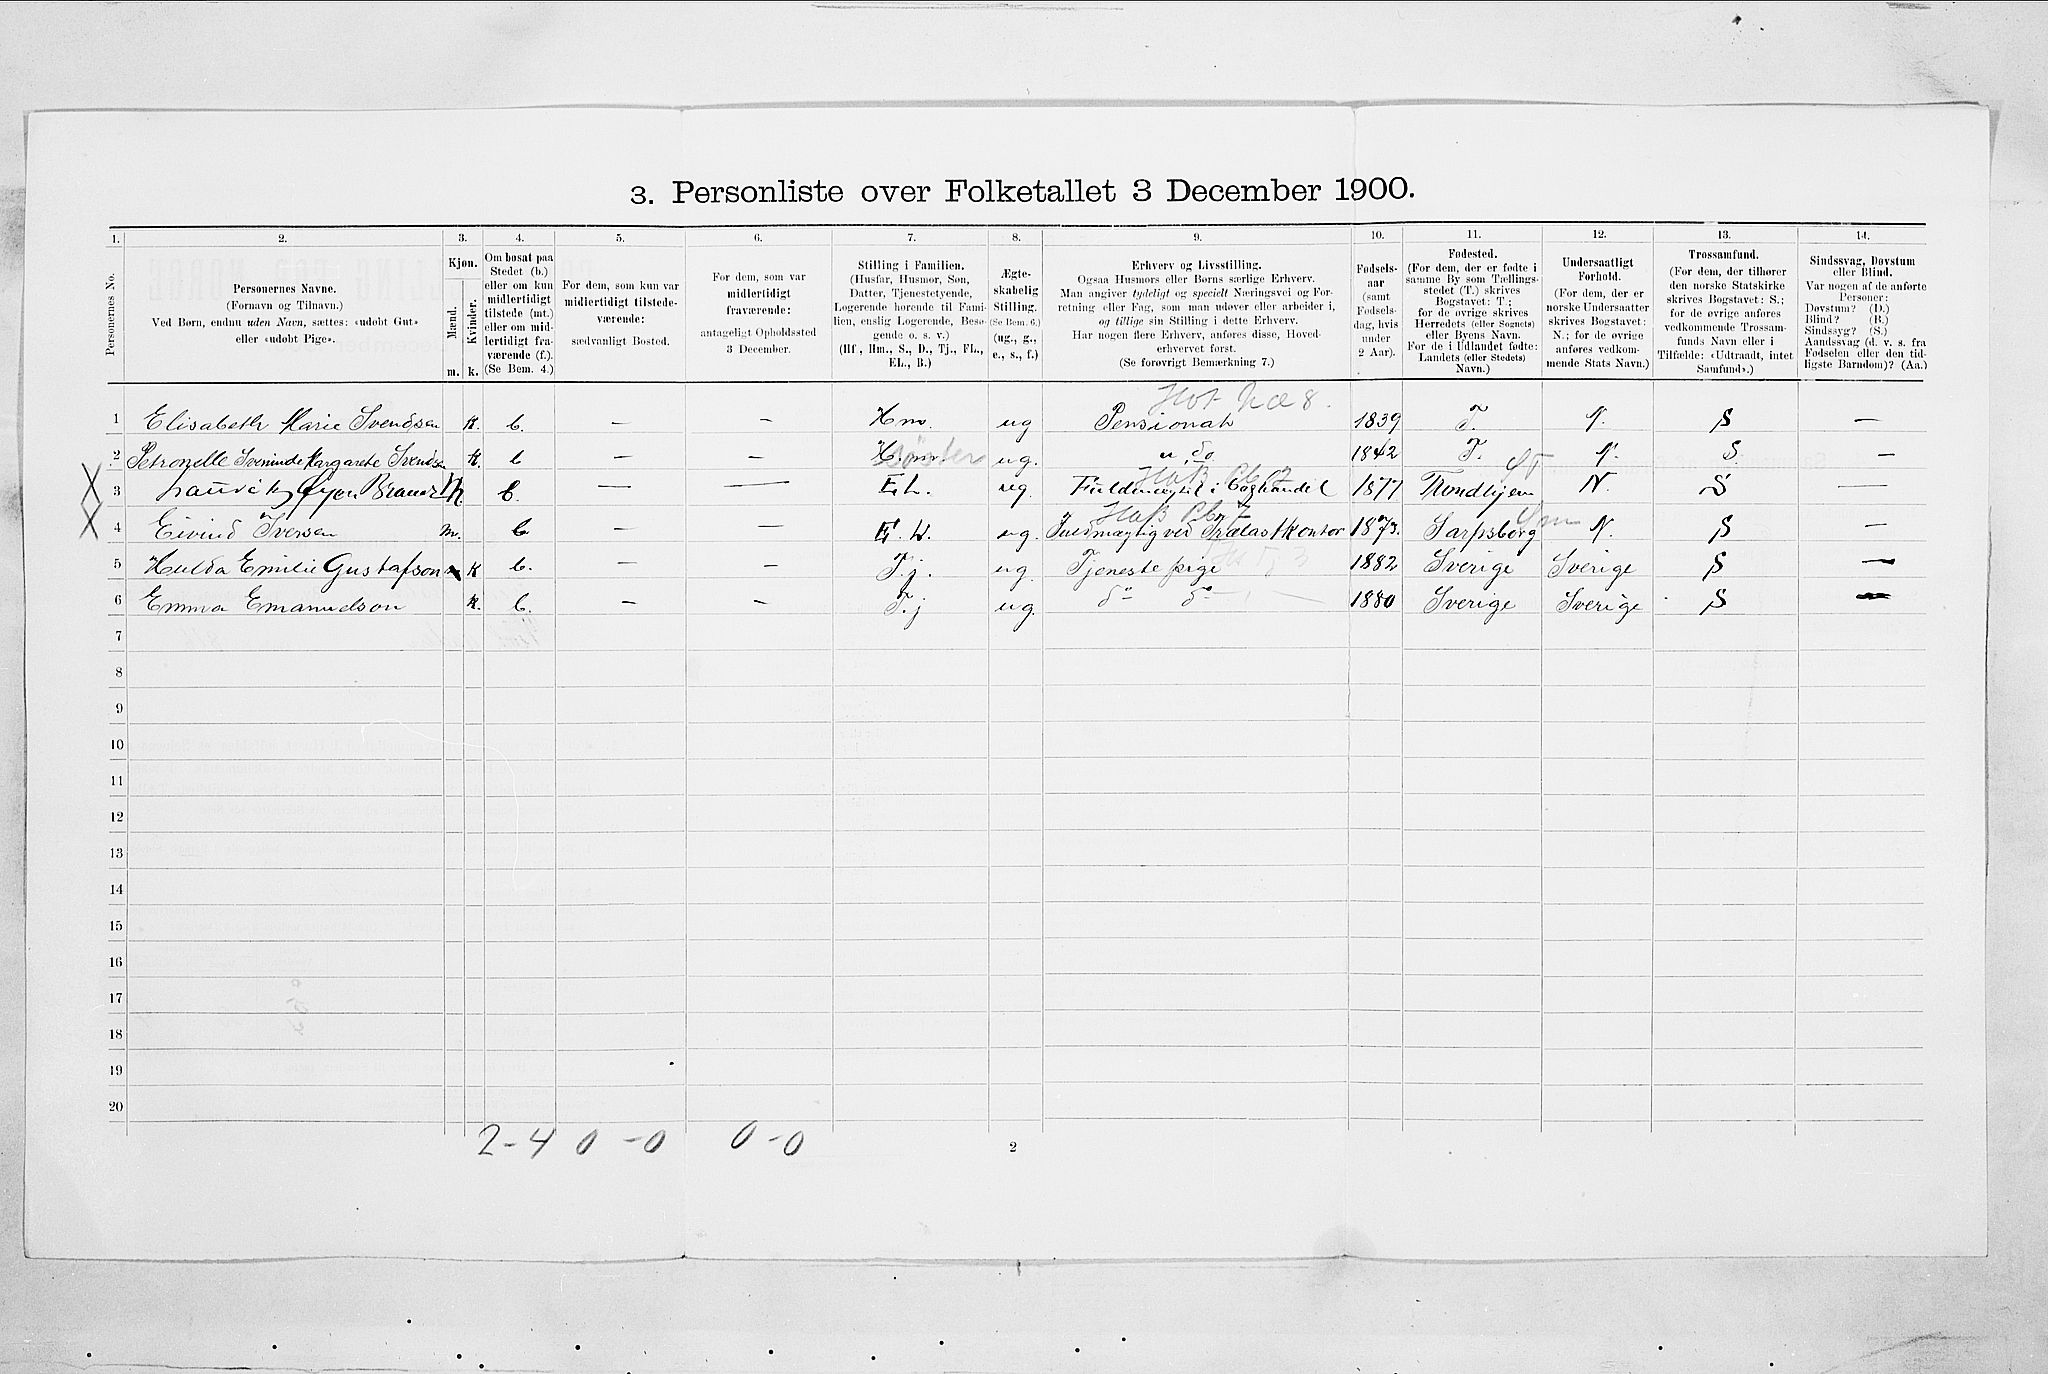 3. Personliste over Folketallet 3 December 1900.
1. 2. 3. 4. 5. 6. 7. 8. 9. 10. 11. 12. 13. 14.
Personernes No.
Personernes Navne.
(Fornavn og Tilnavn.)
Ved Børn, endnu uden Navn, sættes: «udøbt Gut»
eller «udøbt Pige».
Kjøn.
Mænd.
Kvinder.
m. k.
Om bosat paa
Stedet (b.)
eller om kun
midlertidigt
tilstede (mt.)
eller om mid-
lertidigt fra-
værende (f.).
(Se Bem. 4.)
For dem, som kun var
midlertidigt tilstede-
værende:
sædvanligt Bosted.
For dem, som var
midlertidigt
fraværende:
antageligt Opholdssted
3 December.
Stilling i Familien.
(Husfar, Husmor, Søn,
Datter, Tjenestetyende,
Logerende hørende til Fami-
lien, enslig Logerende, Besø-
gende o. s. v.)
(Hf., Hm., S., D., Tj., FL.,
EL., B.)
Ægte-
skabelig
Stilling.
(Se Bem. 6.)
(ug., g.,
e., s., f.)
Erhverv og Livsstilling.
Ogsaa Husmors eller Børns særlige Erhverv.
Man angiver tydeligt og specielt Næringsvei og For-
retning eller Fag, som man udøver eller arbeider i,
og tillige sin Stilling i dette Erhverv.
Har nogen flere Erhverv, anføres disse, Hoved-
erhvervet først.
(Se forøvrigt Bemærkning 7.)
Fødsels-
aar
(samt
Fødsels-
dag, hvis
under
2 Aar).
Fødested.
(For dem, der er fødte i
samme By som Tællings-
stedet (T.) skrives
Bogstavet: T.;
for de øvrige skrives
Herredets (eller Sognets)
eller Byens Navn.
For de i Udlandet fødte:
Landets (eller Stedets)
Navn.)
Undersaatligt
Forhold.
(For dem, der er
norske Undersaatter
skrives Bogstavet:
N.; for de øvrige
anføres vedkom-
mende Stats Navn.)
Trossamfund.
(For dem, der tilhører
den norske Statskirke
skrives Bogstavet: S.;
for de øvrige anføres
vedkommende Trossam-
funds Navn eller i
Tilfælde: «Udtraadt, intet
Samfund».)
Sindssvag, Døvstum
eller Blind.
Var nogen af de anførte
Personer:
Døvstum? (D.)
Blind? (B.)
Sindssyg? (S.)
Aandssvag (d. v. s. fra
Fødselen eller den tid-
ligste Barndom)? (Aa.)
1 Elisabeth Marie Svendsen k. b. — — Hm. ug Pensionat 1839 T. N. S —
2 Petronelle Margarethe Svendsen k. b — — Søster ug. " do 1842 T. N. S. —
3 Brandt M b. — — E L. ug. Fuldmægtil i Boghandel 1877 Trondhjem N. S —
4 Eivind Iversen m. b — — E. L. ug. Fuldmægtig ved Trælastkontor 1873. Sarpsborg N. S —
5 Hulda Emilie Gustafson k b. — — T.j. ug. Tjenestepige 1882 Sverige Sverige S —
6 Emma Emanuelson k. b. — — T.j ug. do do 1880 Sverige Sverige S —
7
8
9
10
11
12
13
14
15
16
17
18
19
20
2-4 0-0 0-0
2